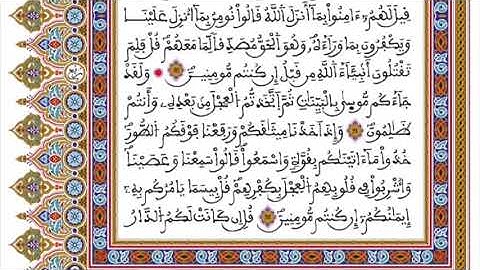 قِيلَ لَهُمُۥٓ ءَامِنُواْ بِمَآ أَنزَلَ اَ۬للَّهُ قَالُواْ نُومِنُ بِمَآ أُنزِلَ عَلَيْنَا
وَيَكْفُرُونَ بِمَا وَرَآءَهُۥ وَهُوَ اَ۬لْحَقُّ مُصَدِّقاٗ لِّمَا مَعَهُمْ قُلْ فَلِمَ
تَقْتُلُونَ أَنۢبِئَآءَ اَ۬للَّهِ مِن قَبْلُ إِن كُنتُم مُّومِنِينَ وَلَقَدْ
جَآءَكُم مُّوسَىٰ بِالْبَيِّنَٰتِ ثُمَّ اَ۪تَّخَذتُّمُ اُ۬لْعِجْلَ مِنۢ بَعْدِهِۦ وَأَنتُمْ
ظَٰلِمُونَ وَإِذَ اَخَذْنَا مِيثَٰقَكُمْ وَرَفَعْنَا فَوْقَكُمُ اُ۬لطُّورَ
خُذُواْ مَآ ءَاتَيْنَٰكُم بِقُوَّةٖ وَاسْمَعُواْ قَالُواْ سَمِعْنَا وَعَصَيْنَا
وَأُشْرِبُواْ فِي قُلُوبِهِمُ اُ۬لْعِجْلَ بِكُفْرِهِمْ قُلْ بِيسَمَا يَامُرُكُم بِهِۦٓ
إِيمَٰنُكُمُۥٓ إِن كُنتُم مُّومِنِينَ قُلِ اِن كَانَتْ لَكُمُ اُ۬لدَّارُ